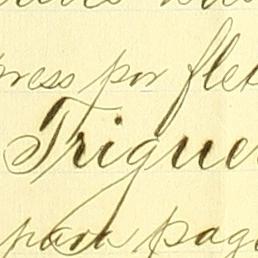 press por flet
Trigue
para pag